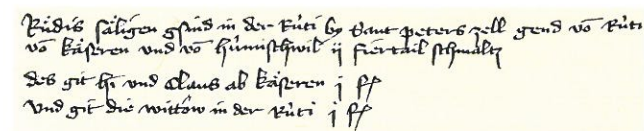 Růdis säligen gsind in der Rüti by Sant peters zell gend vō Rüti
vō käseren und vō hūmischwil ij fiertail schmaltz
des git hi und Claus ab käseren j ſſ
und git die wittöw in der Rüti j ſſ